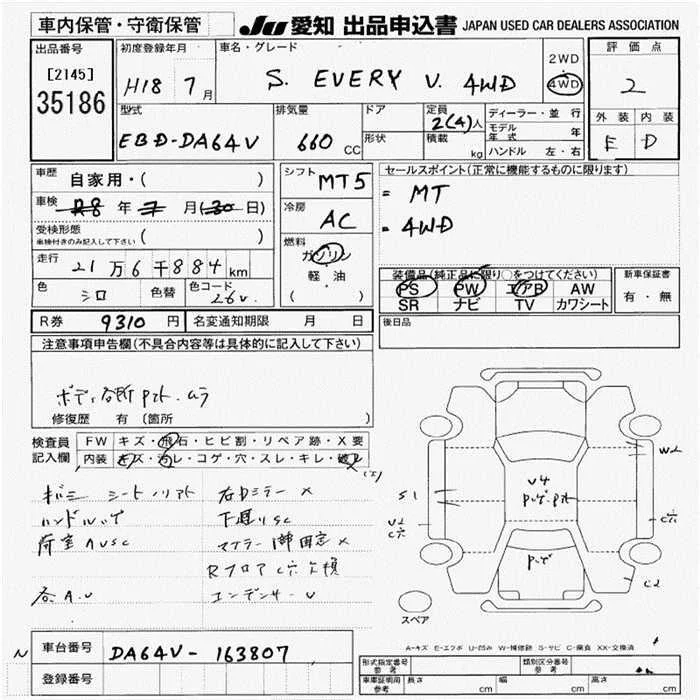 車内保管・守衛保管
JU 愛知 出品申込書 JAPAN USED CAR DEALERS ASSOCIATION
出品番号
[2145]
35186
初度登録年月
H18 7月
車名・グレード
S. EVERY V. 4WD
2WD
4WD
評価点
2
外装 内装
E D
型式
EBD-DA64V
排気量
660 CC
ドア
形状
定員
2(4)人
積載
kg
ディーラー・並行
モデル年式 年
ハンドル 左・右
車歴
自家用・( )
車検
R8 年 7 月(30日)
受検形態
車検付きのみ記入して下さい ( )
走行
21万6千884km
色
シロ
色替
色コード
26V.
シフト
MT5
冷房
AC
燃料
ガソリン
軽・油
( )
セールスポイント(正常に機能するものに限ります)
= MT
= 4WD
装備品(純正品に限り○をつけてください)
PS PW エアB AW
SR ナビ TV カワシート
新車保証書
有・無
R券 9310 円
名変通知期限 月 日
後日品
注意事項申告欄(不具合内容等は具体的に記入して下さい)
修復歴 有 (箇所 )
検査員記入欄
FW キズ・飛石・ヒビ割・リペア跡・X要
内装 キズ・汚レ・コゲ・穴・スレ・キレ・破レ
右ドミラー X
下廻りSC
荷室AUSC
各A.U
S1
W2
C2
スペア
A-キズ E-エクボ U-凹み W-補修跡 S-サビ C-腐食 XX-交換済
車台番号
DA64V-163807
登録番号
N
形式指定番号
参考
類別区分番号
参考
車庫証明用
参考
長さ cm
幅 cm
高さ cm